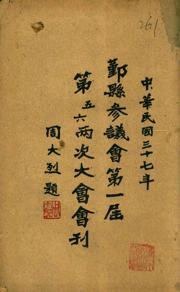 中華民國三十七年
鄞縣參議會第一屆
第五六兩次大會會刋
周大烈題
261